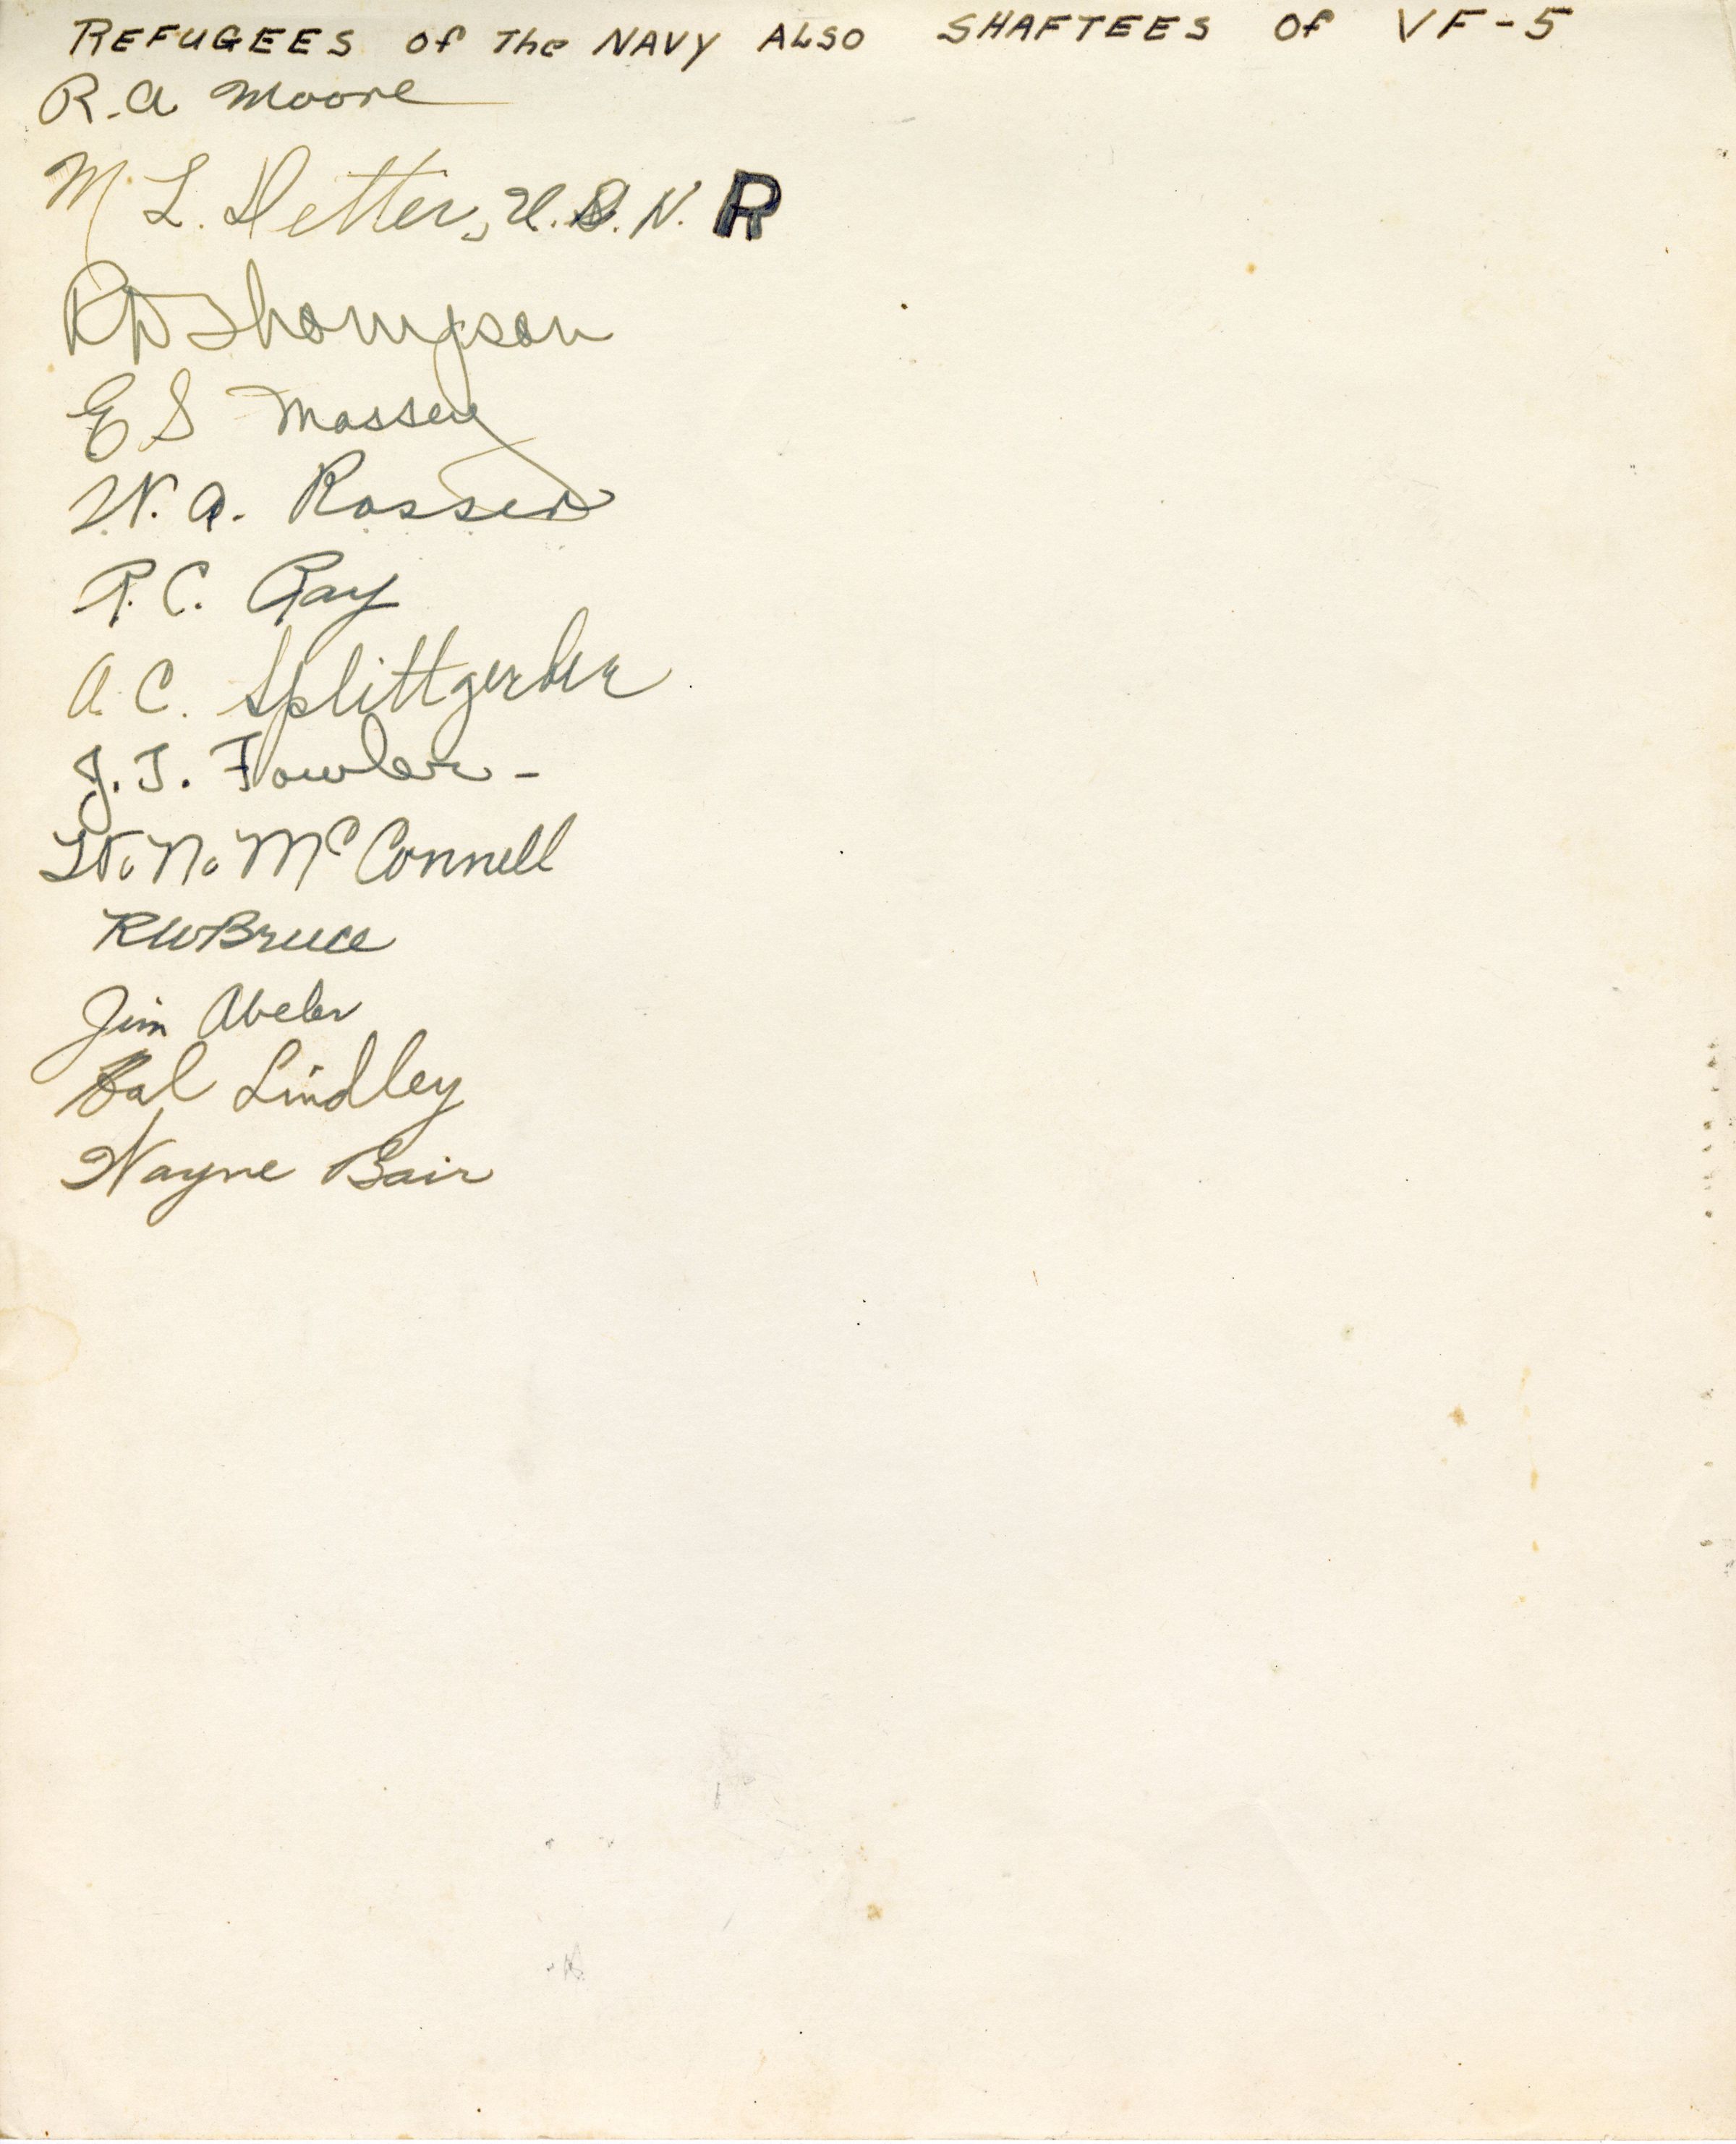 REFUGEES of The NAVY ALSO SHAFTEES of VF-5
R.A Moore
M L. Detter, U.S.N. R
RD Thompson
E S Massey
W. A. Rosser
R. C. Ray
A. C. Splittgerber
J. T. Fowler -
W. N. McConnell
RW Bruce
Jim Abeler
Hal Lindley
Wayne Bair